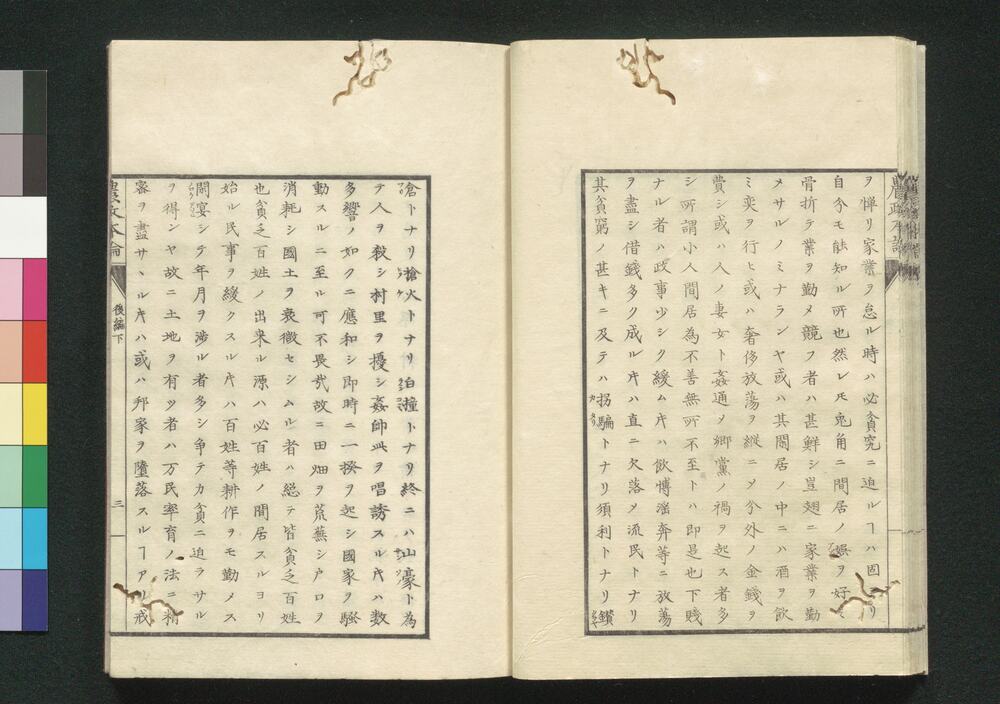 ヲ憚リ家業ヲ怠ル時ハ必貧究ニ迫ルヿハ固ヨリ
自分モ能知ル所也然レ𪜈兎角ニ間居ノ娯ヲ好ミ
骨折テ業ヲ勤メ競フ者ハ甚鮮シ豈翅ニ家業ヲ勤
メサルノミナランヤ或ハ其間居ノ中ニハ酒ヲ飲
ミ奕ヲ行ヒ或ハ奢侈放蕩ヲ縦ニメ分外ノ金錢ヲ
費シ或ハ人ノ妻女ト姦通メ郷黨ノ禍ヲ起ス者多
シ所謂小人間居為不善無所不至トハ即是也下賤
ナル者ハ政事少シク緩ム片ハ飲博滛奔等ニ放蕩
ヲ盡シ借錢多ク成ル片ハ直ニ欠落メ流民トナリ
其貧窮ノ甚キニ及テハ拐騙トナリ須利トナリ鑚
艙トナリ搶火トナリ泊撞トナリ終ニハ山濠ト為
テ人ヲ殺シ村里ヲ擾シ姦師此ヲ唱誘スル片ハ数
多響ノ如クニ應和シ即時ニ一揆ヲ起シ國家ヲ騒
動スルニ至ル可不畏哉故ニ田畑ヲ荒蕪シ户口ヲ
消耗シ國土ヲ衰微セシムル者ハ總テ皆貧乏百姓
也貧乏百姓ノ出来ル源ハ必百姓ノ間居スルヨリ
始ル民事ヲ緩クスル片ハ百姓等耕作ヲモ勤メス
閑宴シテ年月ヲ渉ル者多シ争テカ貧ニ迫ラサル
ヲ得ンヤ故ニ土地ヲ有ツ者ハ万民率育ノ法ニ精
密ヲ盡サヽル片ハ或ハ邦家ヲ墮落スルヿアリ戒
農政本論
後編下
三